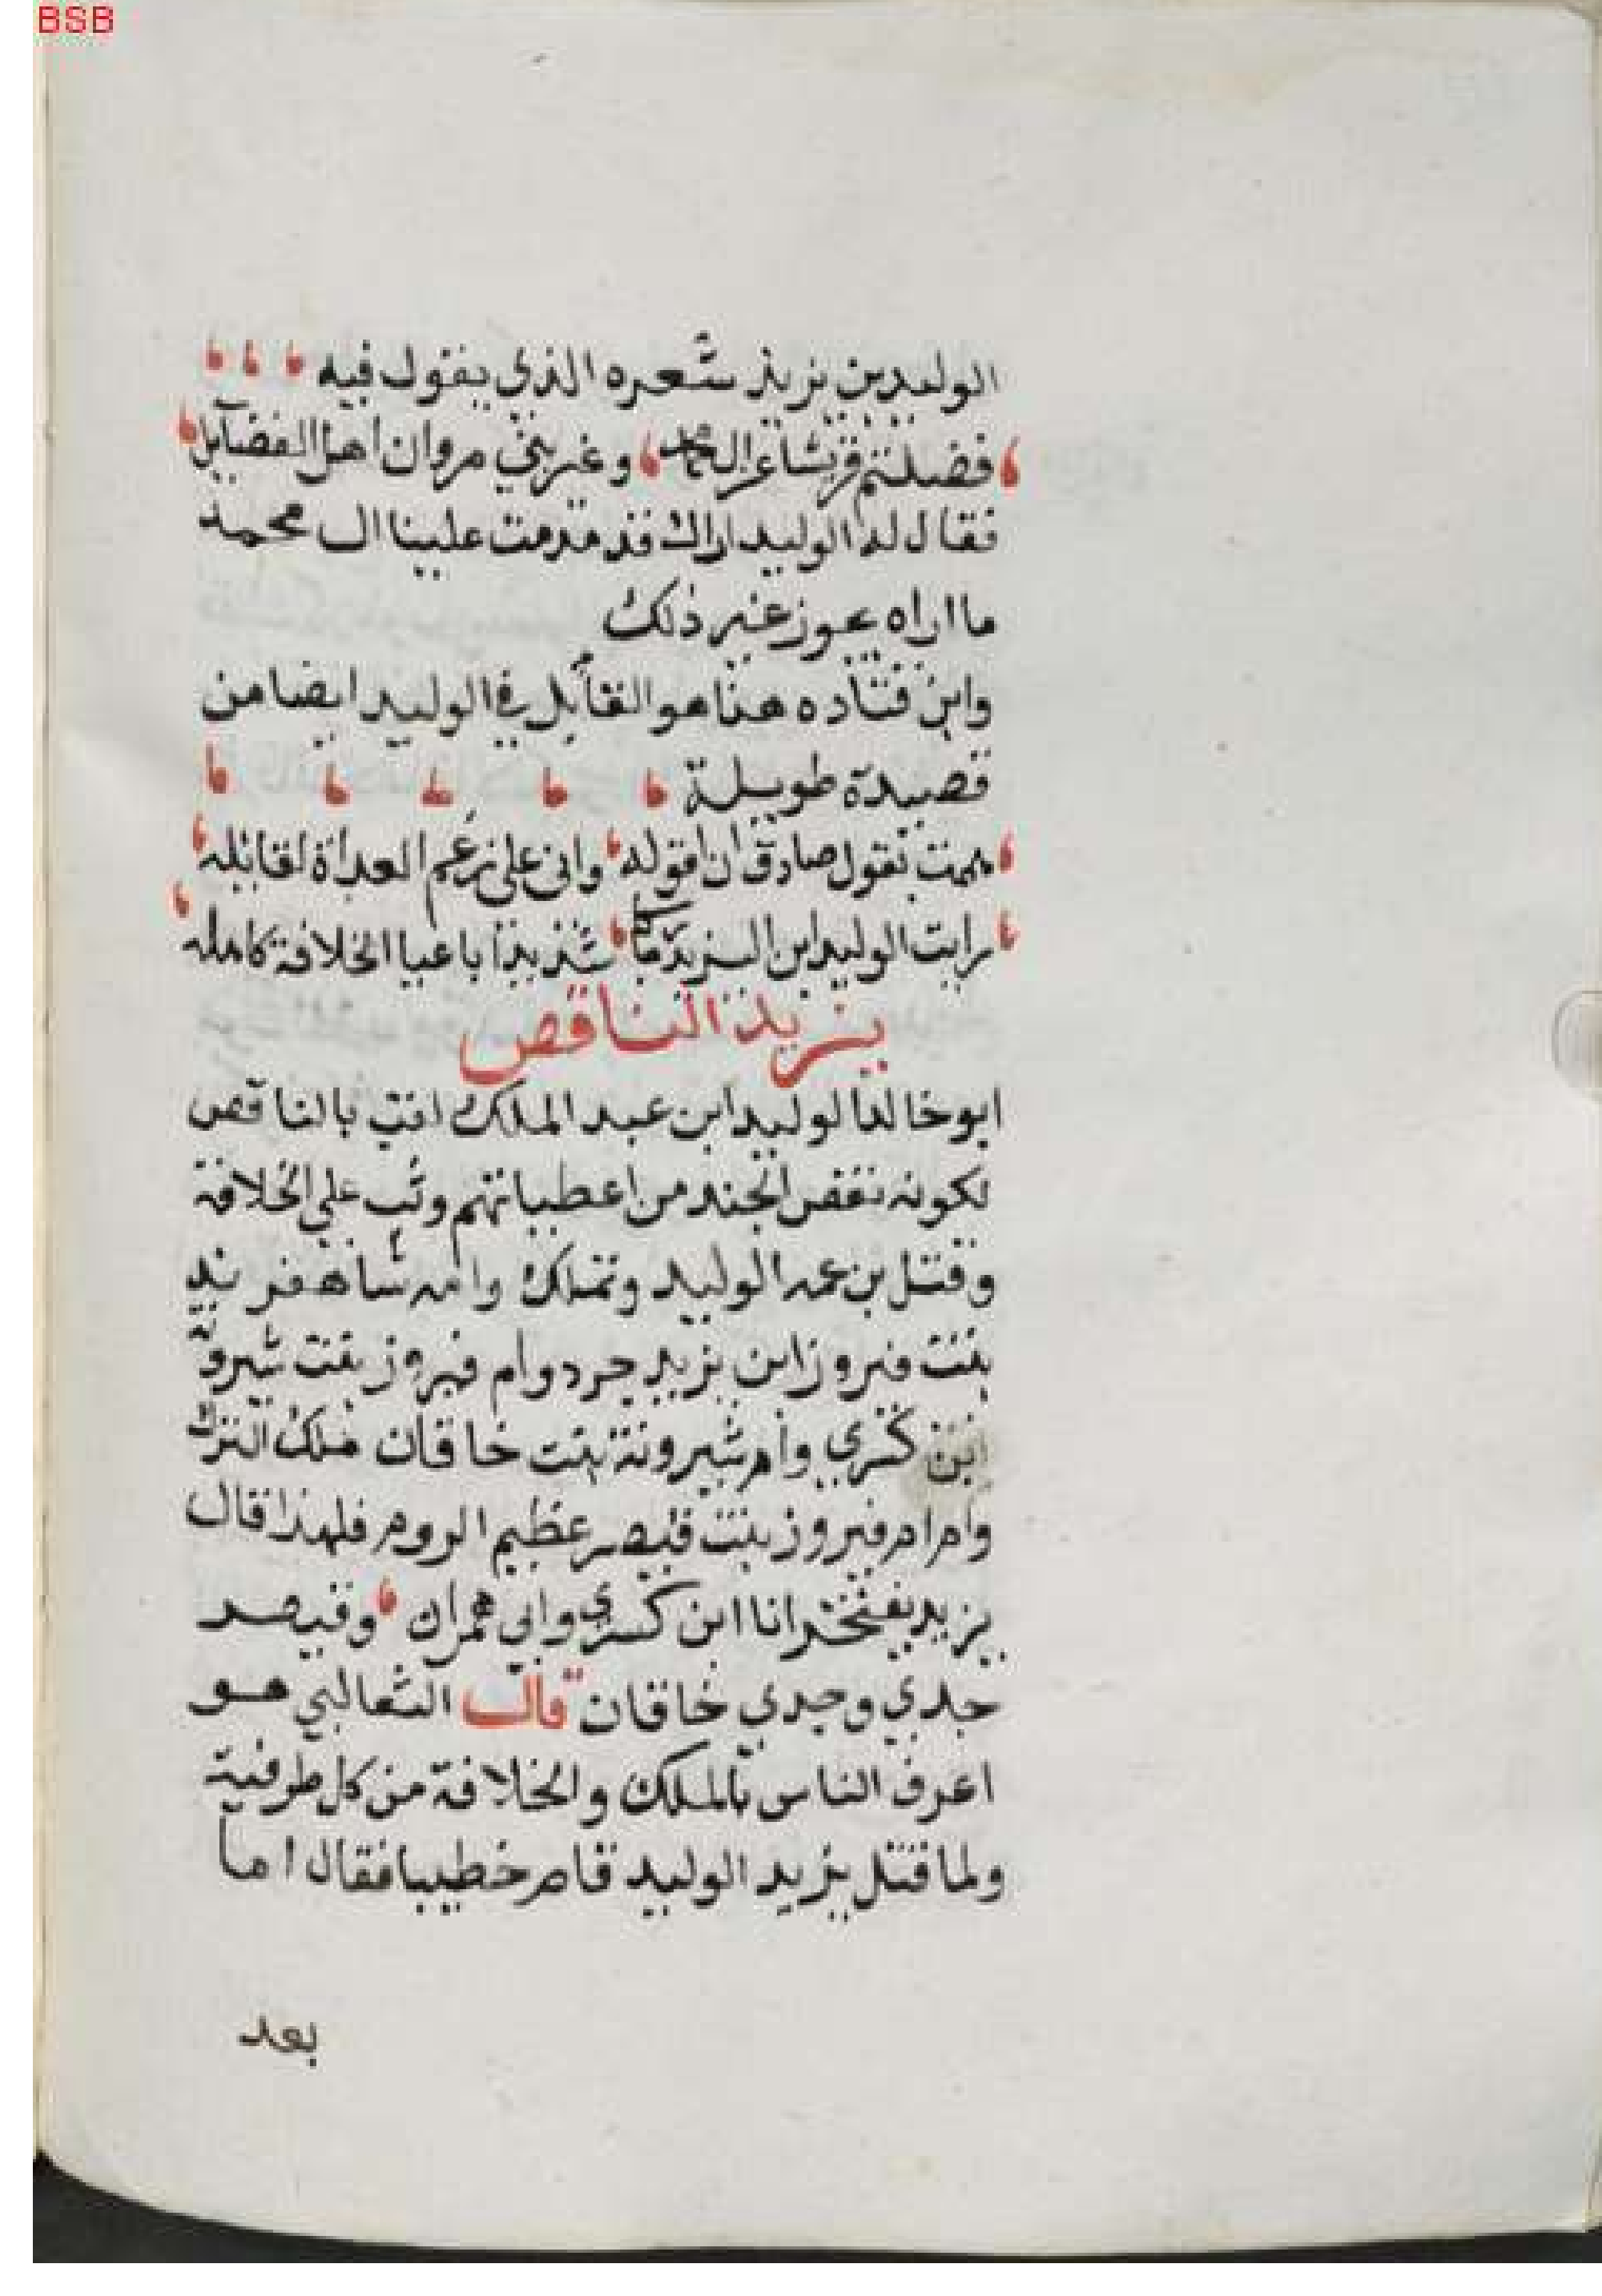 BSB
الوليد بن يزيد شعره الذي يقول فيه
فضلتم قريشا غير ال محمد وغير بني مروان اهل الفضايل
فقال له الوليد اراك قد قدمت علينا ال محمد
ما اراه يجوز غير ذلك
وابن قتاده هنا هو القائل في الوليد ايضا من
قصيدة طويلة
هممت بقول صادق ان اقوله واني على رغم العداة لقايله
رايت الوليد ابن اليزيد مباركا شديدا باعيا الخلافة كامله
يزيد الناقص
ابو خالد الوليد ابن عبد الملك بالناقص
لكونه نقص الجند من اعطياتهم وثب علي الخلافة
وقتل بن عمه الوليد وتملك وامه شاه فرند
بنت فيروز ابن يزيد جرد وام فيروز بنت شيرونة
ابن كسري وام شيرونة بنت خاقان ملك الترك
وام ام فيروز بنت قيصر عظيم الروم فلهذا قال
يزيد يفتخر انا ابن كسري وابي مران وقيصر
جدي وجدي خاقان قال الثعالبي هو
اعرف الناس بالملك والخلافة من كل طرفية
ولما قتل يزيد الوليد قام خطيبا فقال اما
بعد